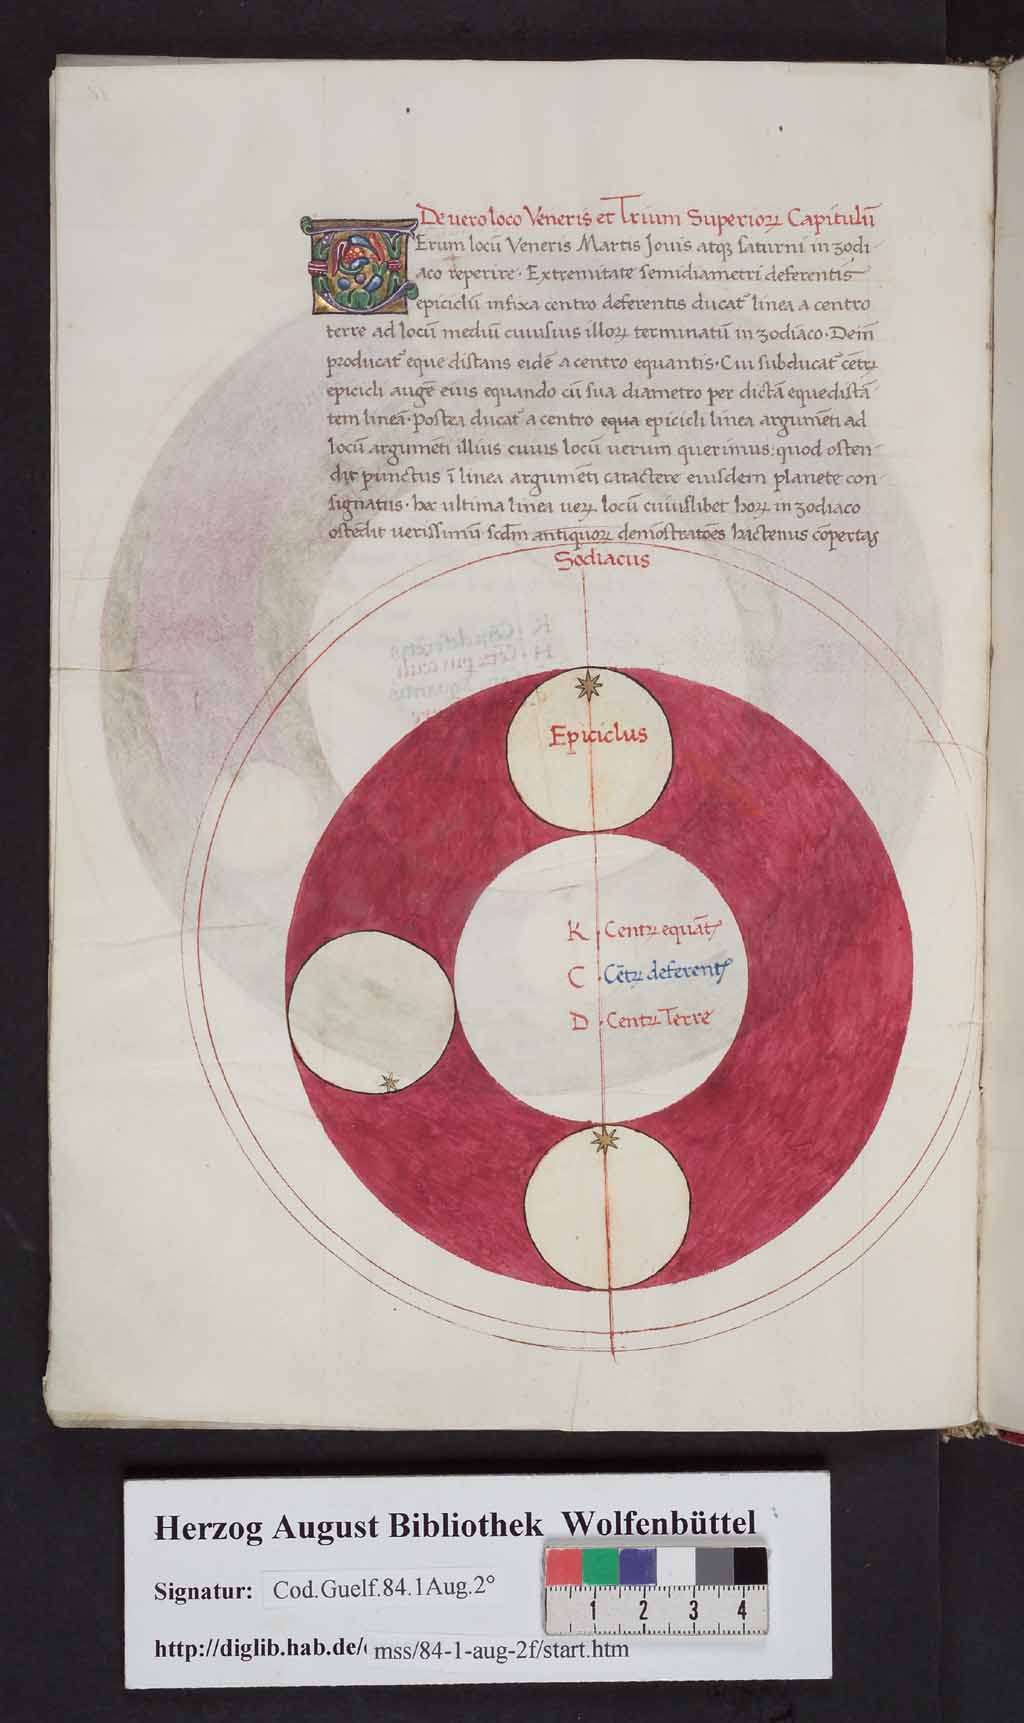 De uero loco Veneris et Trium Superioꝝ Capitulū
VErum locū Veneris Martis Jouis atqꝫ saturni in zodi-
aco reperire · Extremitate semidiametri deferentis
epiciclū infixa centro deferentis ducat᷑ linea a centro
terre ad locū mediū cuiusuis illoꝝ terminatū in zodiaco · Dein̄
producat᷑ eque distans eidē a centro equantis · Cui subducat᷑ cētꝝ
epicicli augē eius equando cū sua diametro per dictā equedistā-
tem lineā · Postea ducat᷑ a centro equa epicicli linea argumēti ad
locū argumēti illius cuius locū uerum querimus: quod osten-
dit punctus ī linea argumēti caractere eiusdem planete con-
signatus · hec ultima linea ueꝝ locū cuiuslibet hoꝝ in zodiaco
ostēdit uerissimū scd̄m antiquoꝝ demōstratōes hactenus cōpertas
Sodiacus
Epiciclus
K · Centꝝ equāt᷒
C · Cētꝝ deferent᷒
D · Centꝝ Terre
Herzog August Bibliothek Wolfenbüttel
Signatur: Cod.Guelf.84.1Aug.2°
1 2 3 4
http://diglib.hab.de/ mss/84-1-aug-2f/start.htm